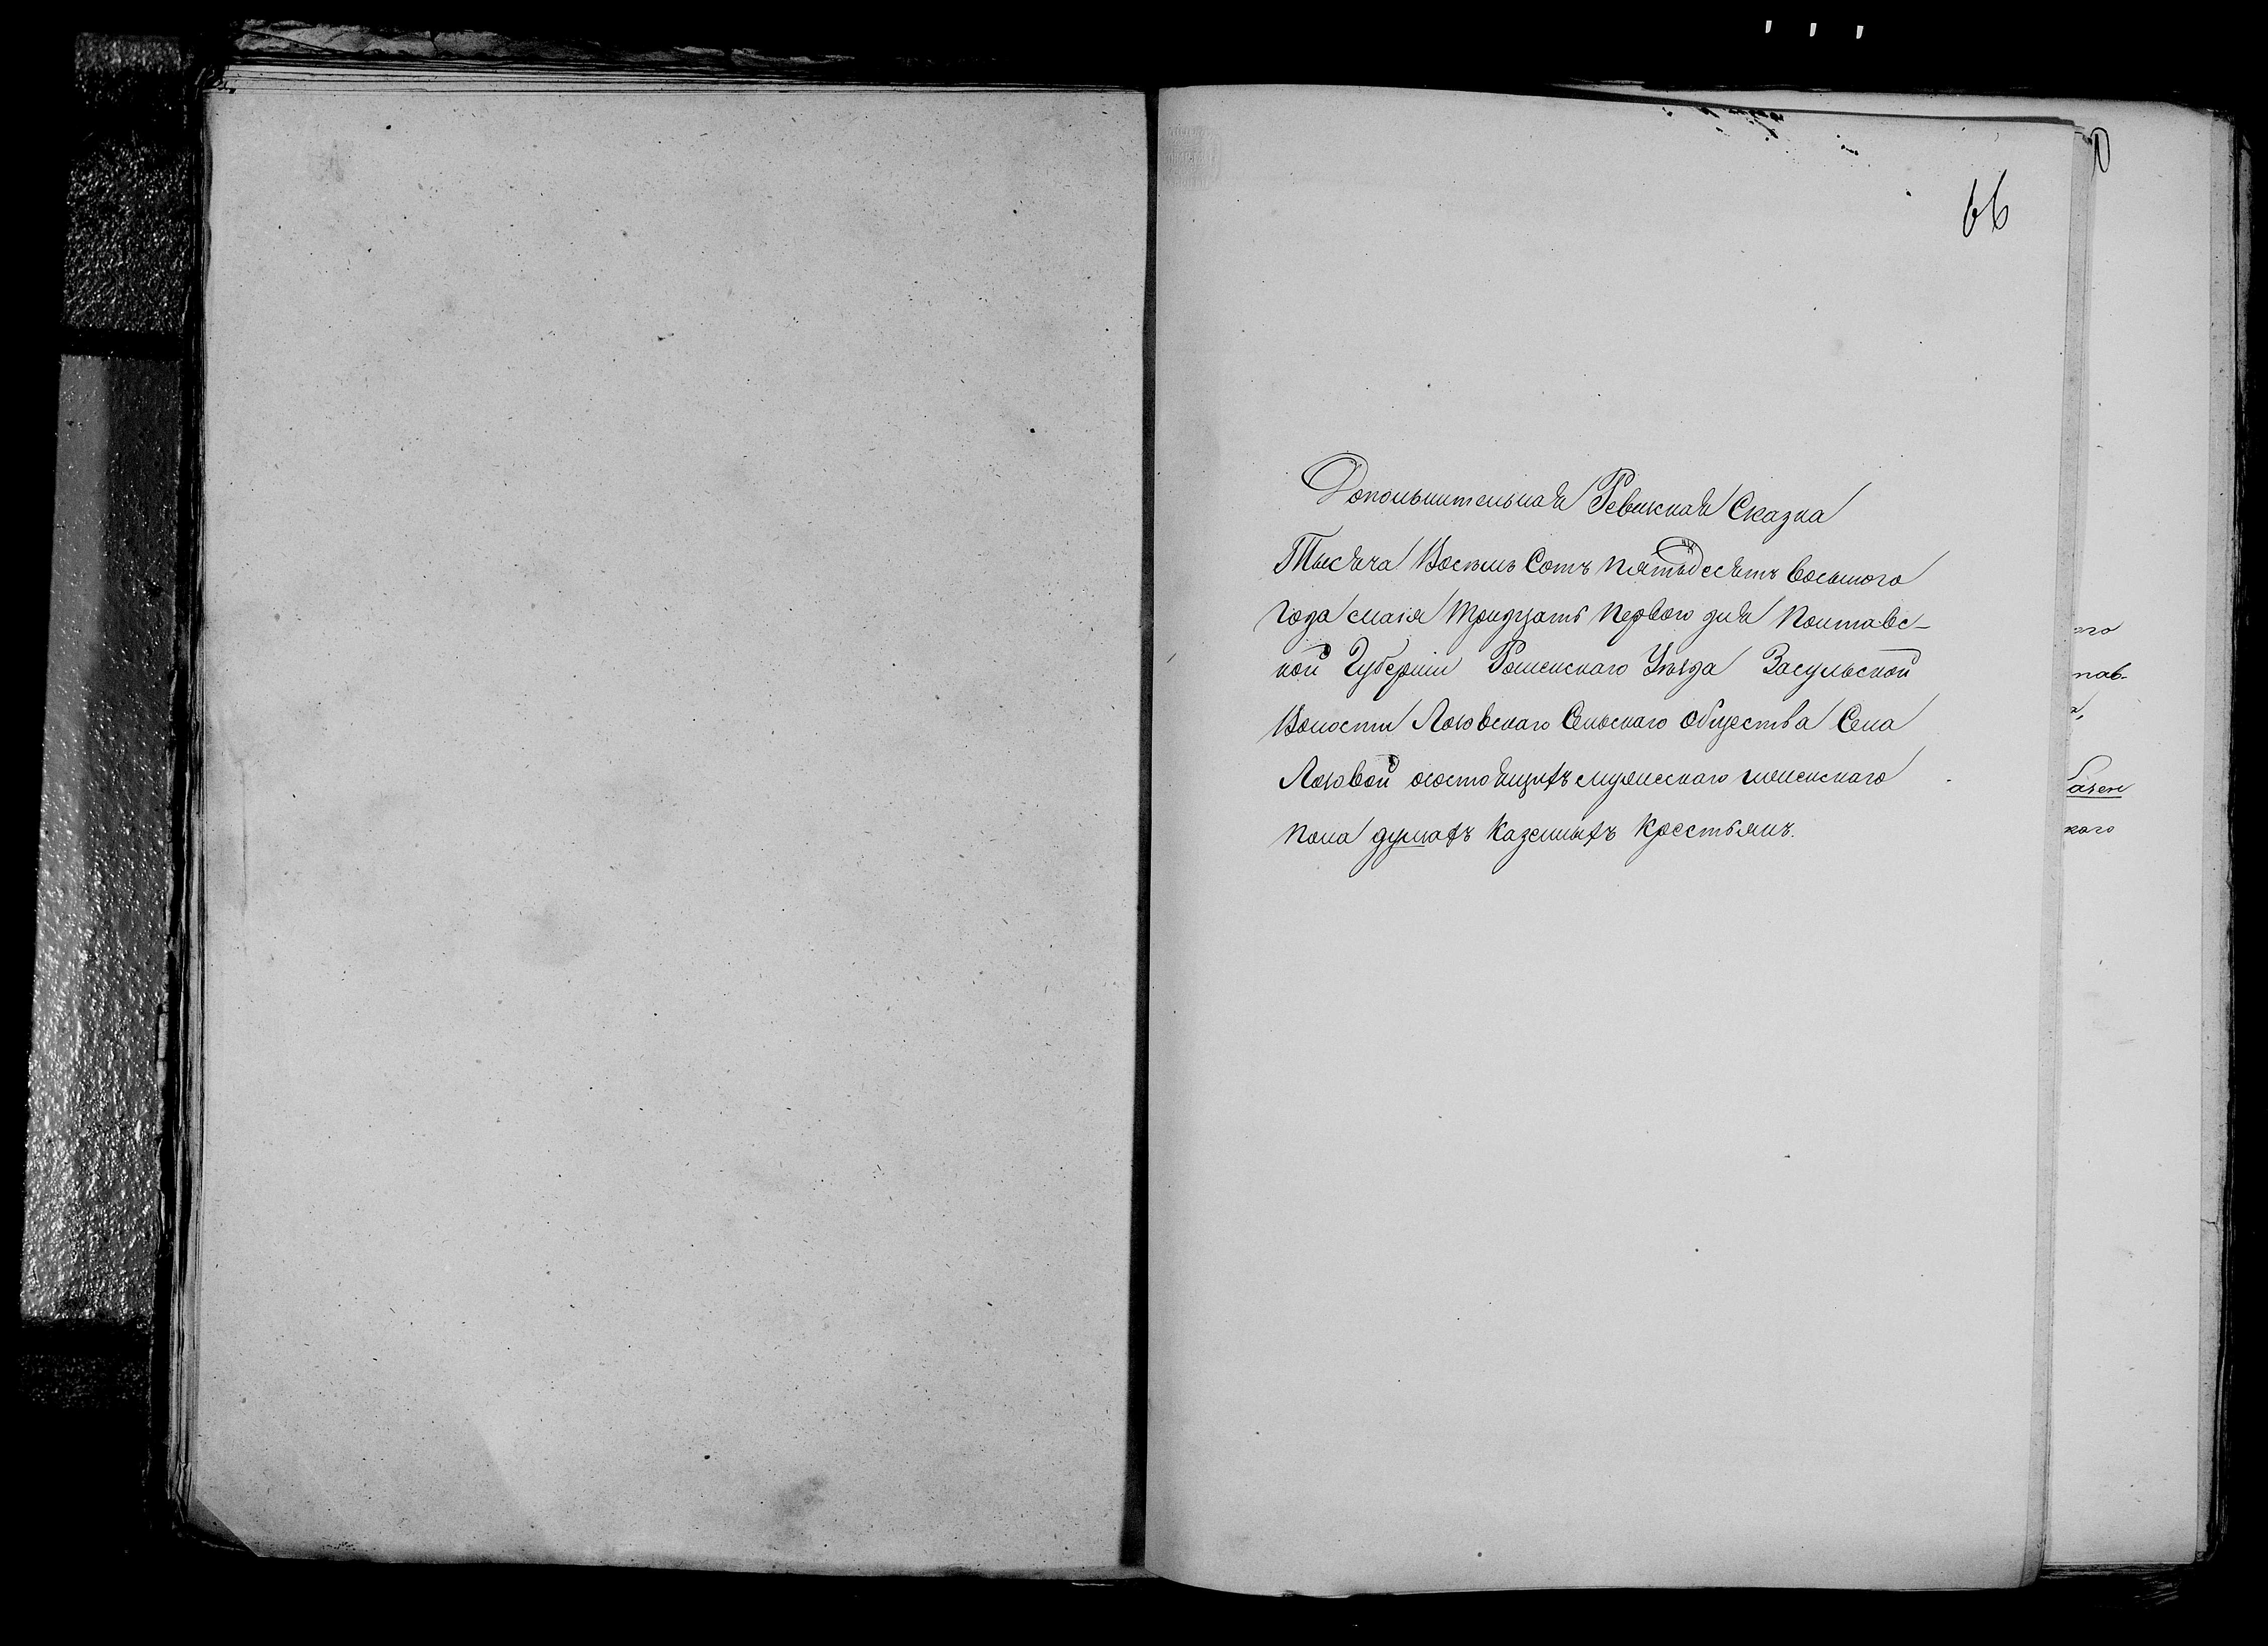 66
Допольнительная Ревизская Сказка
Тысяча Восемь Сотъ пятьдесятъ восьмого
Года маія тридцать первого дня Полтавс-
кой Губерніи Роменскаго Уѣзда Засульской
Волости Ловскаго Сельскаго общества Села
состоящихъ мужескаго женскаго
пола душахъ казенныхъ крестьянъ.
ого
тав-
каго